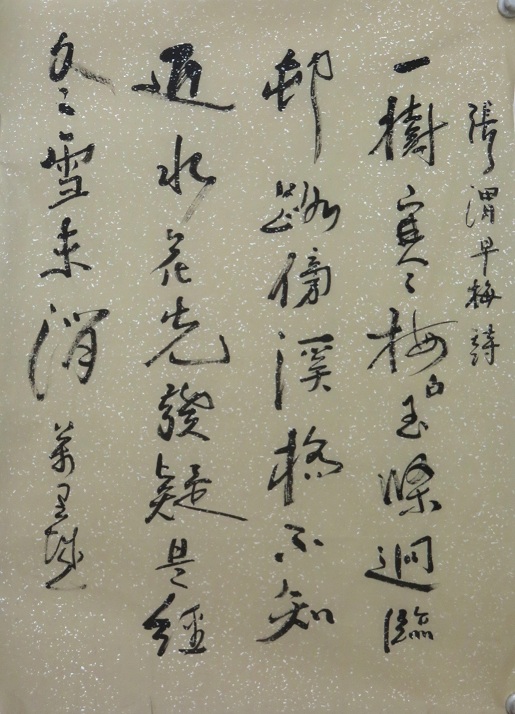 張謂早梅詩
一樹寒梅白玉條迥臨
邨路傍溪橋不知
近水花先發疑是經
冬雪未消 萬里城